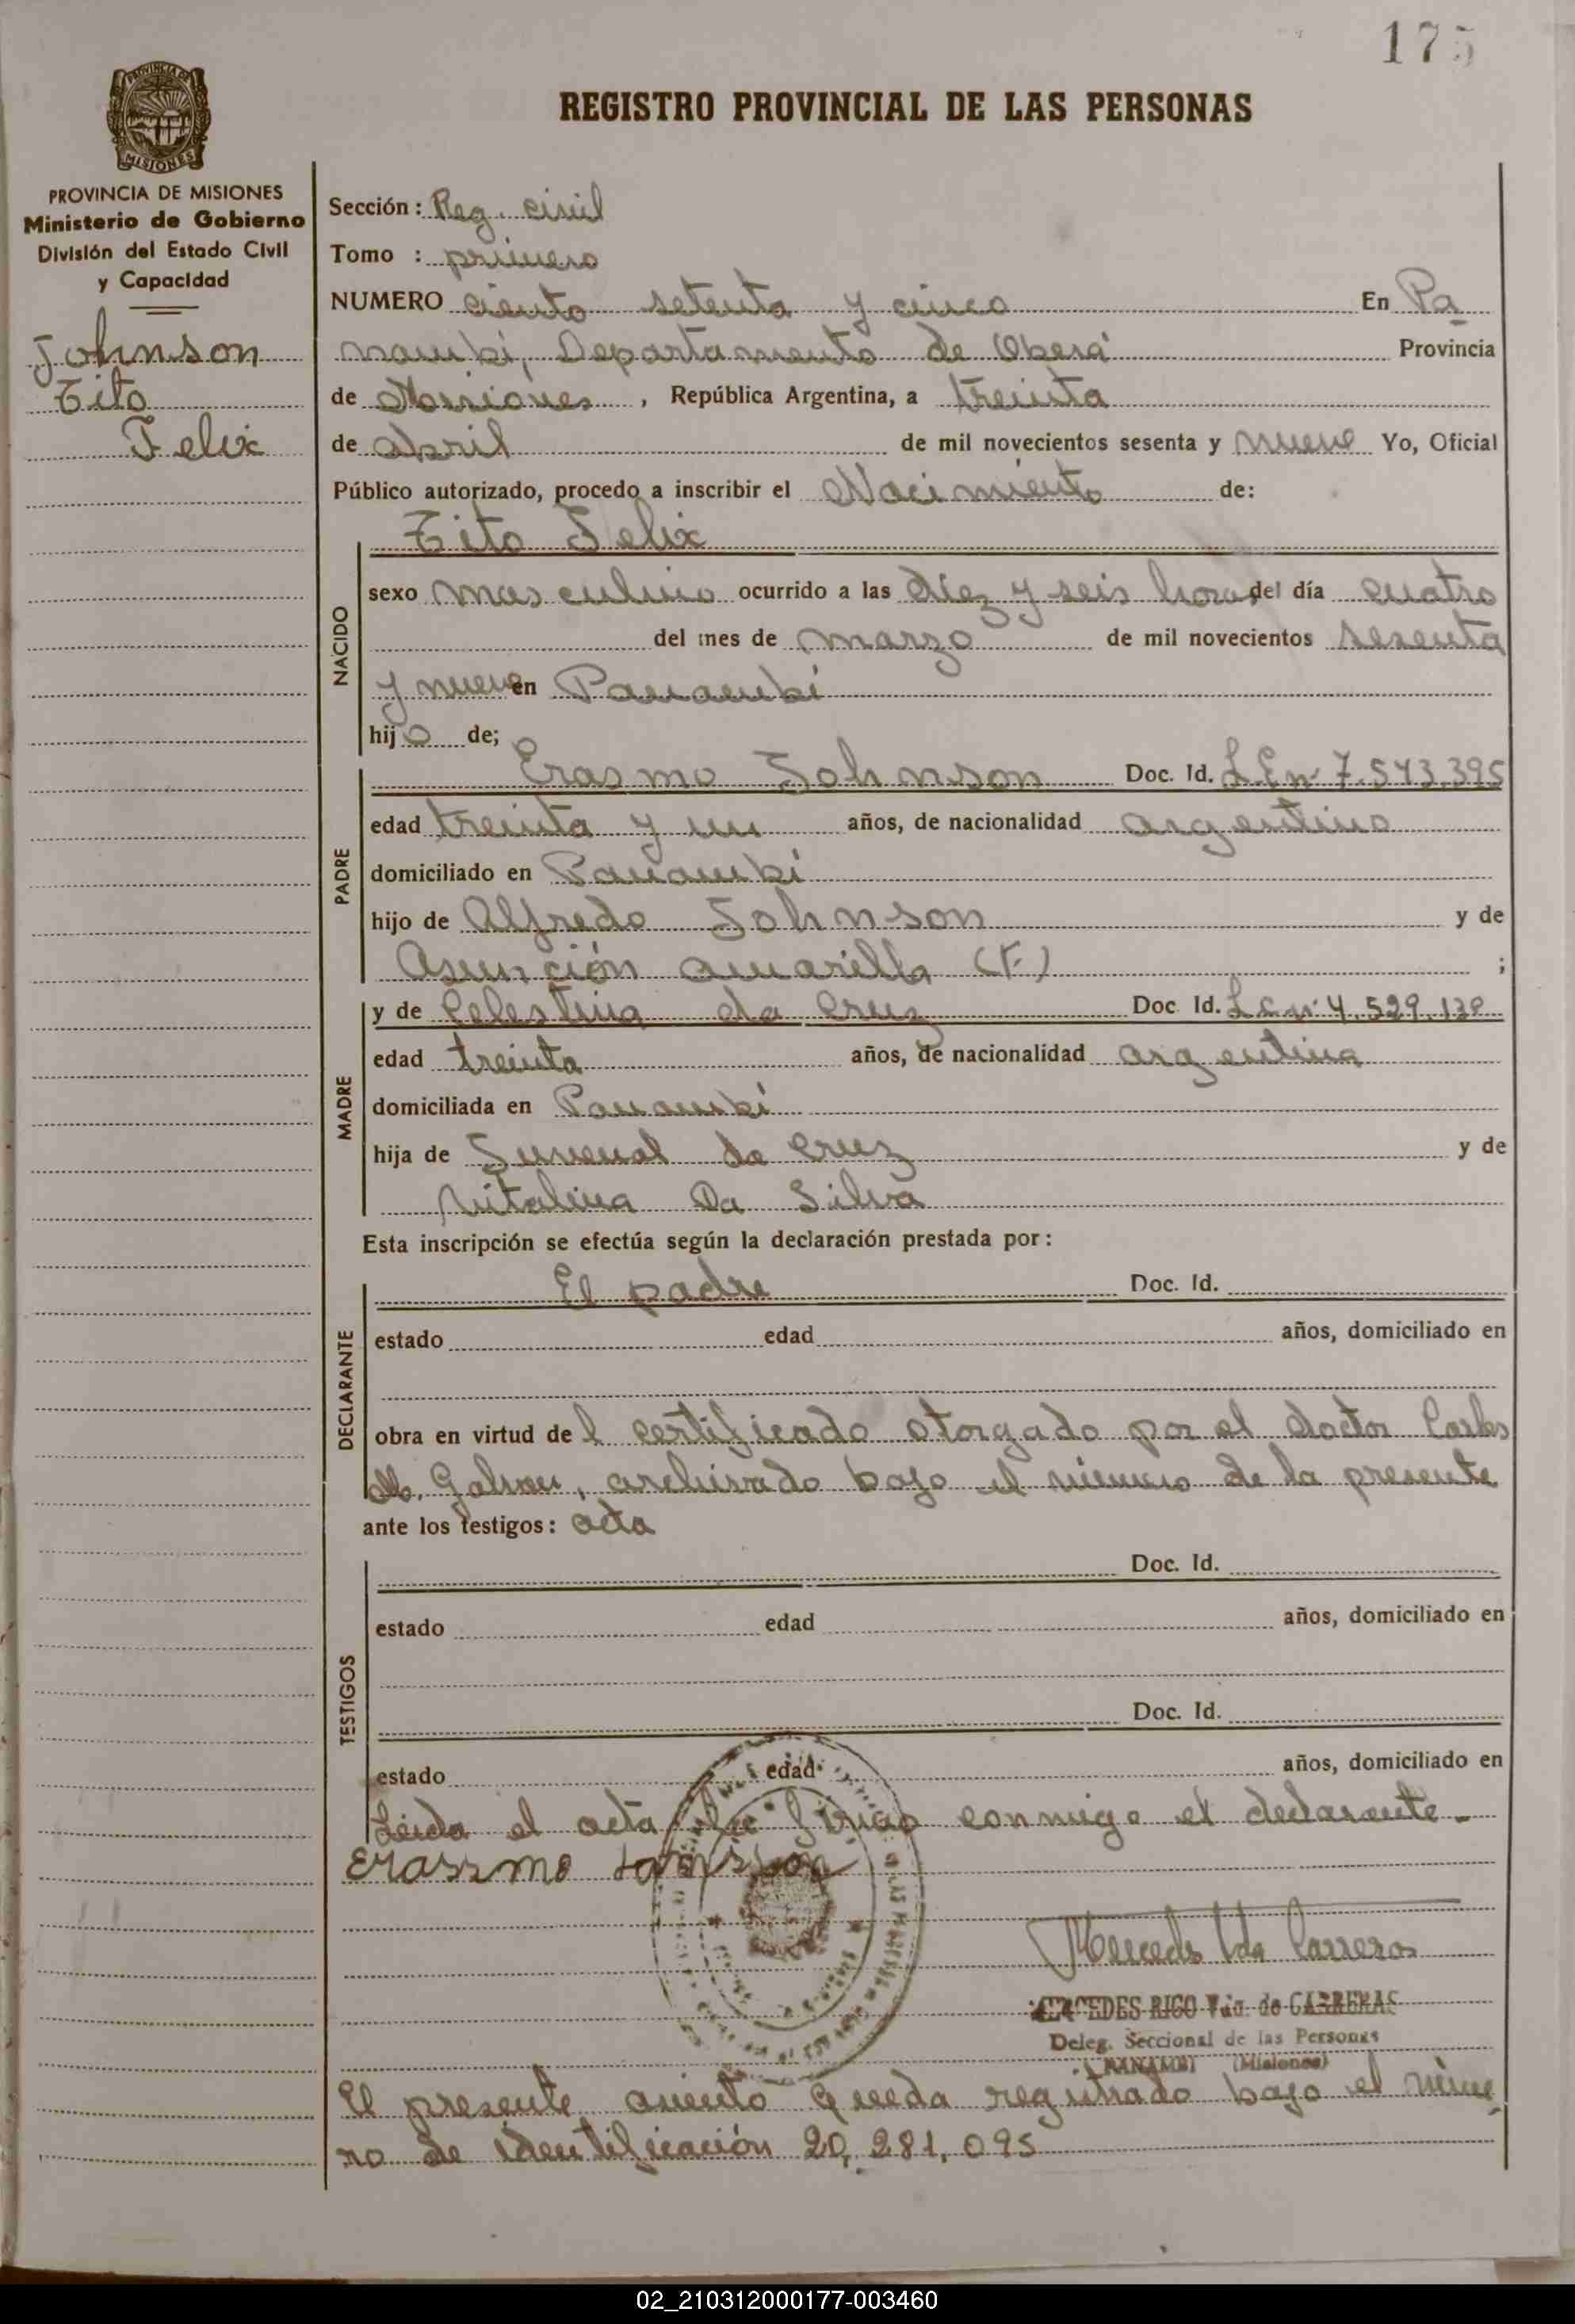 175
REGISTRO PROVINCIAL DE LAS PERSONAS
PROVINCIA DE MISIONES
Ministerio de Gobierno
División del Estado Civil
y Capacidad
Johnson
Tito
Felix
Sección: Reg. civil
Tomo : primero
NUMERO ciento setenta y cinco En Pa
nambí, Departamento de Oberá Provincia
de Misiones, República Argentina, a treinta
de abril de mil novecientos sesenta y nueve Yo, Oficial
Público autorizado, procedo a inscribir el Nacimiento de:
Tito Felix
NACIDO
sexo masculino ocurrido a las diez y seis horas del día cuatro
del mes de marzo de mil novecientos sesenta
y nueve en Panambí
hijo de;
PADRE
Erasmo Johnson Doc. Id. L E nº 7.543.395
edad treinta y un años, de nacionalidad argentino
domiciliado en Panambí
hijo de Alfredo Johnson y de
Asunción Amarilla (F.) ;
MADRE
y de Celestina da Cruz Doc Id. L C nº 4.529.130
edad treinta años, de nacionalidad argentina
domiciliada en Panambí
hija de Juvenal da Cruz y de
Vitalina Da Silva
Esta inscripción se efectúa según la declaración prestada por:
DECLARANTE
El padre Doc. Id.
estado edad años, domiciliado en
obra en virtud del certificado otorgado por el doctor Carlos
M. Galvan, archivado bajo el número de la presente
ante los testigos: acta
TESTIGOS
Doc. Id.
estado edad años, domiciliado en
Doc. Id.
estado edad años, domiciliado en
Leida el acta la firmo conmigo el declarante.
Erassmo
Mercedes Vda Carreras
MERCEDES RIGO Vda. de CARRERAS
Deleg. Seccional de las Personas
PANAMBI (Misiones)
El presente asiento queda registrado bajo el núme
ro de identificación 20,281,095
02_210312000177-003460